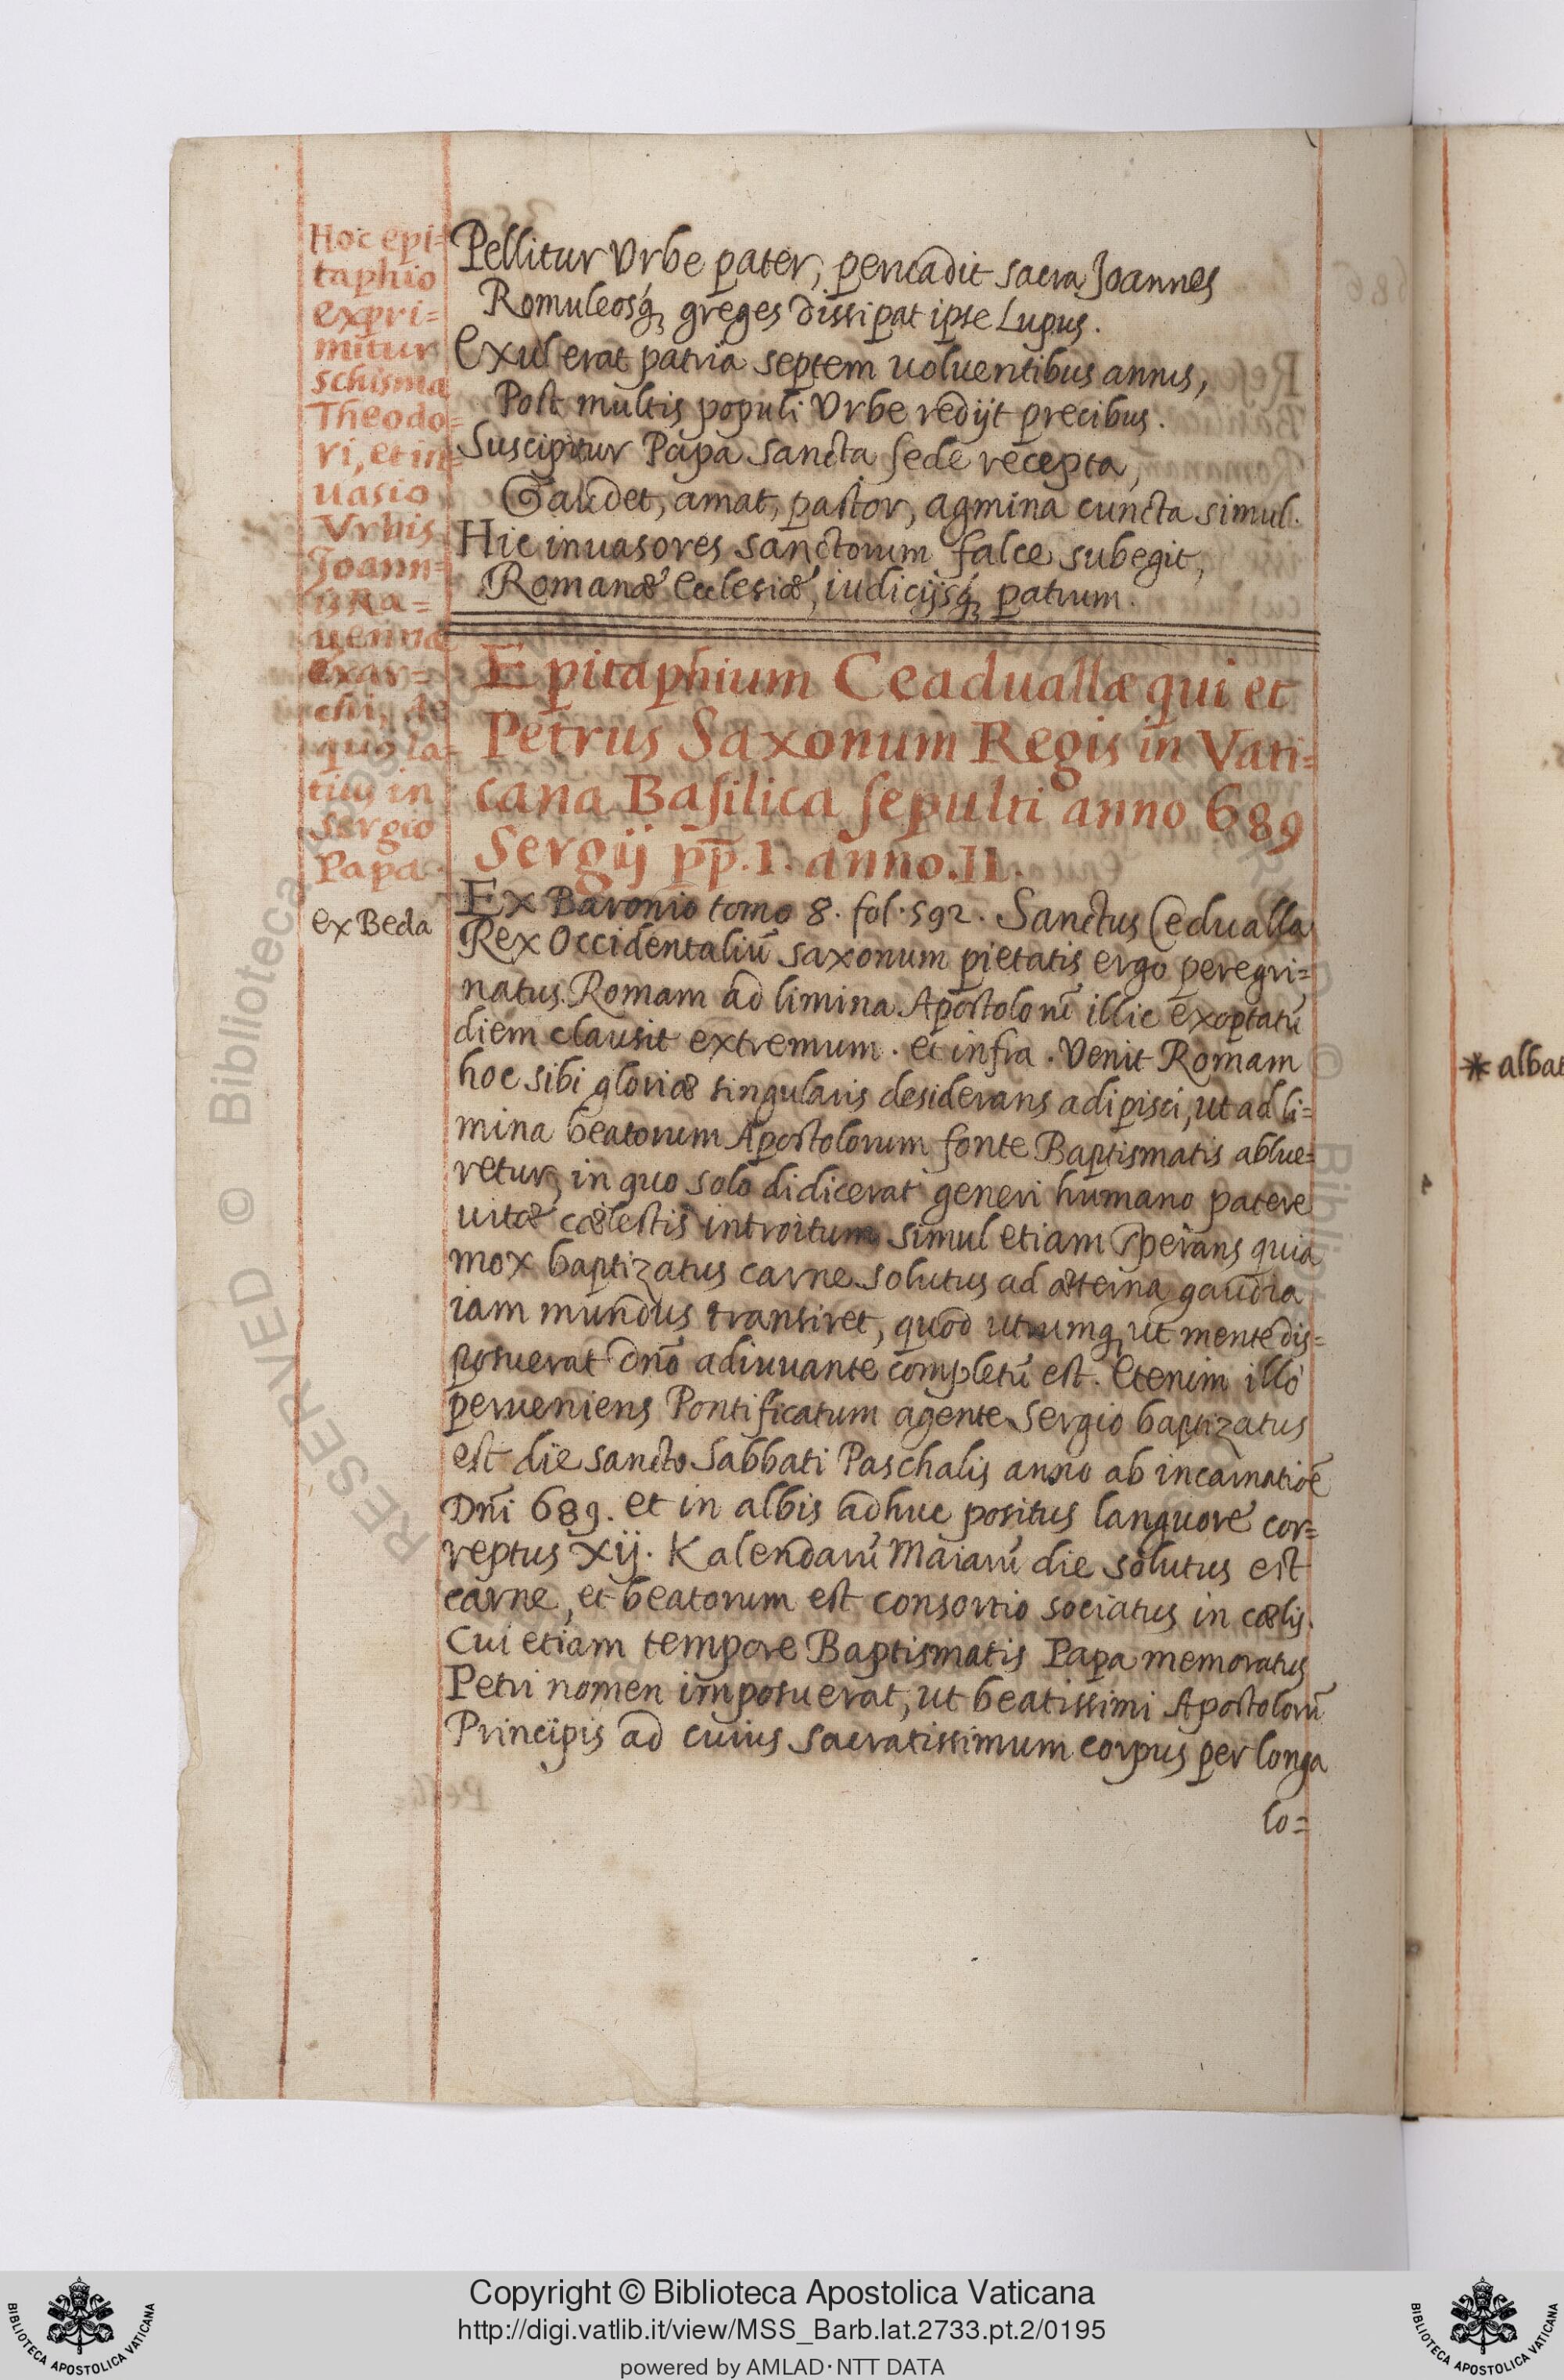 Hoc epi=
taphio
expri=
mitur
schisma
Theodo=
ri, et in=
uasio
Vrbis
Joann=
is Ra=
uennæ
exar=
chi, de
quo la=
tius in
Sergio
Papa.
Pellitur Vrbe pater, peruadit sacra Joannes
Romuleosq́₃ greges dissipat ipse Lupus.
Exul erat patria septem uoluentibus annis,
Post multis populi Vrbe redijt precibus.
Suscipitur Papa sancta sede recepta,
Gaudet, amat, pastor, agmina cuncta simul.
Hic inuasores sanctorum falce subegit,
Romanæ Ecclesiæ, iudicijsq́₃ patrum.
Epitaphium Ceaduallæ qui et
Petrus Saxonum Regis in Vati=
cana Basilica sepulti anno 689
Sergij p̄p̄. I. anno. II.
ex Beda
Ex Baronio tomo 8. fol. 592. Sanctus Cedualla
Rex Occidentaliū saxonum pietatis ergo peregri=
natus Romam ad limina Apostolorū illic exoptatū
diem clausit extremum. et infra. Venit Romam
hoc sibi gloriæ singularis desiderans adipisci, ut ad li=
mina beatorum Apostolorum fonte Baptismatis ablue=
retur, in quo solo didicerat generi humano patere
uitæ cælestis introitum simul etiam sperans quia
mox baptizatus carne solutus ad æterna gaudia
iam mundus transiret, quod utrumq₃ ut mente dis=
posuerat dn̄o adiuuante completū est. Etenim illo
perueniens Pontificatum agente Sergio baptizatus
est die sancto Sabbati Paschalis anno ab incarnatiōe
Dn̄i 689. et in albis adhuc positus languore cor=
reptus xij. Kalendarū Maiarū die solutus est
carne, et beatorum est consortio sociatus in cælis.
Cui etiam tempore Baptismatis Papa memoratus
Petri nomen imposuerat, ut beatissimi Apostolorū
Principis ad cuius sacratissimum corpus per longa
lo=
* albat
Copyright © Biblioteca Apostolica Vaticana
http://digi.vatlib.it/view/MSS_Barb.lat.2733.pt.2/0195
powered by AMLAD·NTT DATA
BIBLIOTECA APOSTOLICA VATICANA
BIBLIOTECA APOSTOLICA VATICANA